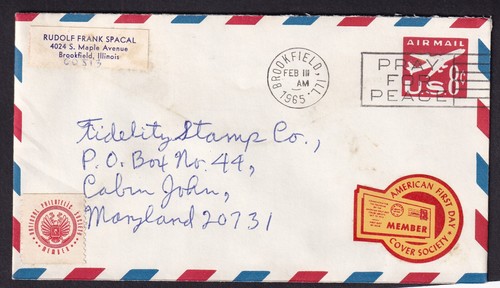 RUDOLF FRANK SPACAL
4024 S. Maple Avenue
Brookfield, Illinois
60513
BROOKFIELD, ILL.
FEB
AM
1965
PRAY
FOR
PEACE
AIR MAIL
U.S. 8c
Fidelity Stamp Co.,
P. O. Box No. 44,
Cabin John,
Maryland 20731
NATIONAL PHILATELIC SOCIETY
MEMBER
AMERICAN FIRST DAY
MEMBER
COVER SOCIETY